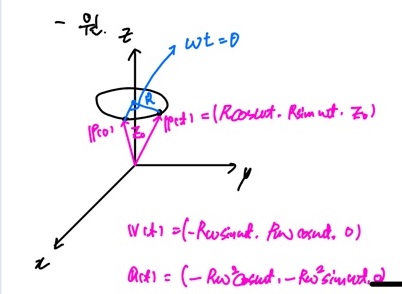 - 원.
z
wt = θ
R
P(0)
z₀
P(t) = (Rcoswt. Rsinwt. z₀)
y
x
V(t) = (-Rwsinwt. Rwcoswt. 0)
a(t) = (-Rw²coswt. -Rw²sinwt. 0)